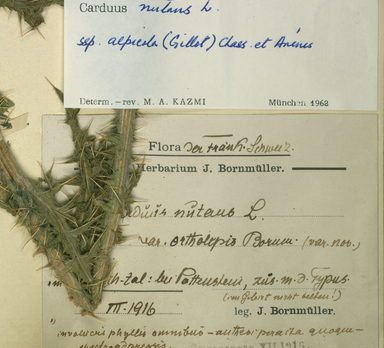 Carduus nutans L.
ssp. alpicola (Gillot) Chass. et Arènes
Determ. – rev. M. A. KAZMI München 1962
Flora der fränk. Schweiz.
Herbarium J. Bornmüller.
nutans L.
var. ortholepis Bornm. (var. nov.)
bei Pottenstein, zus. m. d. Typus.
(im Gebiet nicht selten!)
VII-1916 leg. J. Bornmüller.
involucri phyllis omnibus –